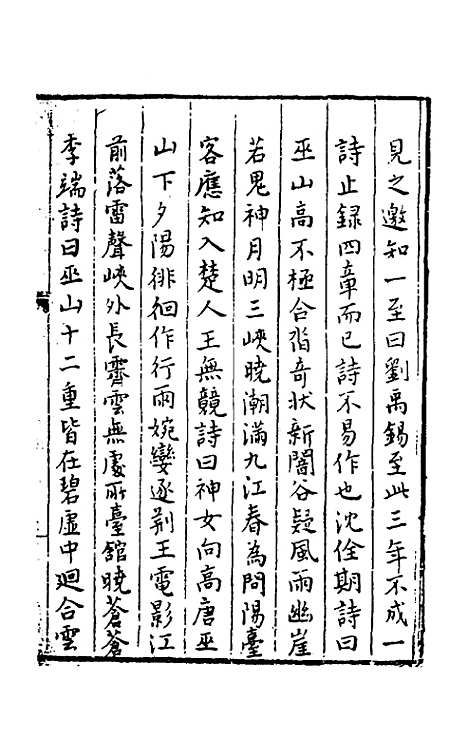 見之邀知一至曰劉禹錫至此三年不成一
詩止録四章而已詩不易作也沈佺期詩曰
巫山高不極合沓奇狀新闇谷疑風雨幽崖
若鬼神月明三峽曉潮滿九江春為問陽臺
客應知入楚人王無競詩曰神女向高唐巫
山下夕陽徘徊作行雨婉孌逐荆王電影江
前落雷聲峽外長霽雲無處所臺舘曉蒼蒼
李端詩曰巫山十二重皆在碧虛中迴合雲